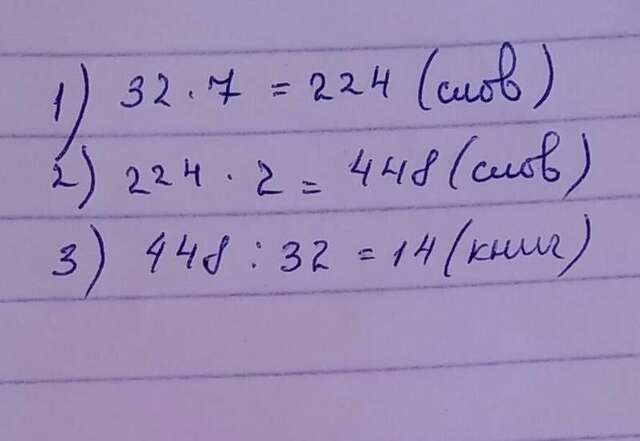 1) 32 · 7 = 224 (слов)
2) 224 · 2 = 448 (слов)
3) 448 : 32 = 14 (книг)